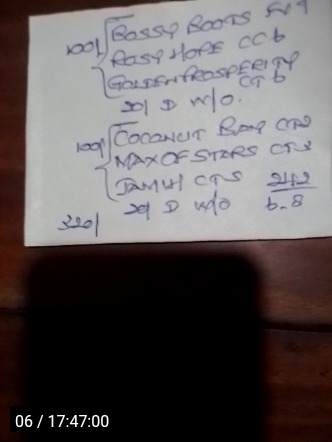 100/ BOSSY BOOTS
ROSY HOPE CC6
GOLDEN PROSPERITY
CT 6
20/ D W/O.
100/ COCONUT BAY CT5
MAX OF STARS CT5
JAMHI CT5 242
20/ D W/O 6-8
320/
06 / 17:47:00